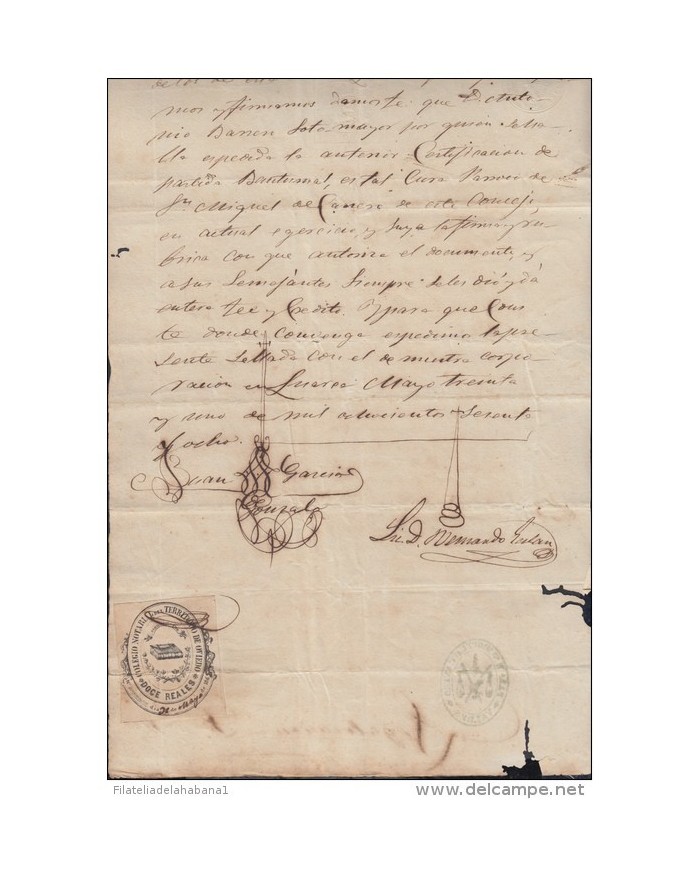 mos y firmamos damos fe: que D. Anto-
nio Barron Sotomayor por quien se ha-
lla espedida la anterior Certificacion de
partida Bautismal, es tal Cura Parroco de
Sn. Miguel de Canero de este Concejo,
en actual egercicio, y suya la firma y ru-
brica con que autoriza el documento, y
a sus Semejantes Siempre se les dió y dá
entera fee y Credito. Y para que Cons
te donde Convenga espedimos la pre-
sente Sellada con el de nuestra corpo-
racion en Luarca Mayo treinta
y uno de mil ochocientos Sesenta
y ocho.
Juan Garcia
Gonzalez
Lic. D. Bernardo
COLEGIO NOTARIAL DEL TERRITORIO DE OVIEDO
DOCE REALES
Filateliadelahabana1
www.delcampe.net